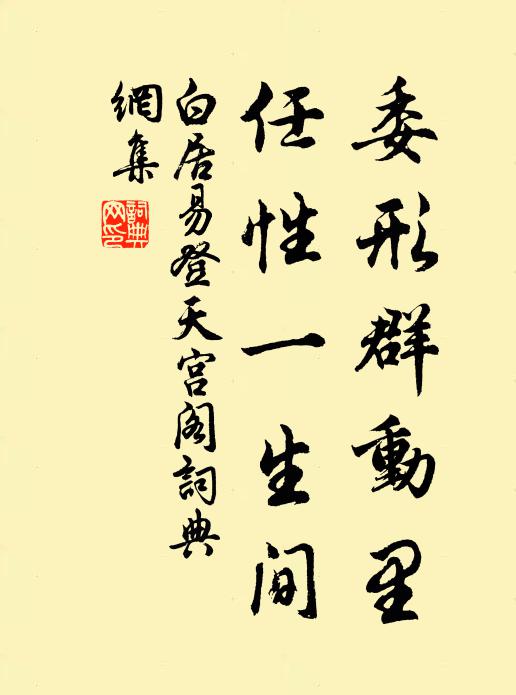 委形群動里
任性一生间
白居易登天宫阁詞典
網集
詞典網印